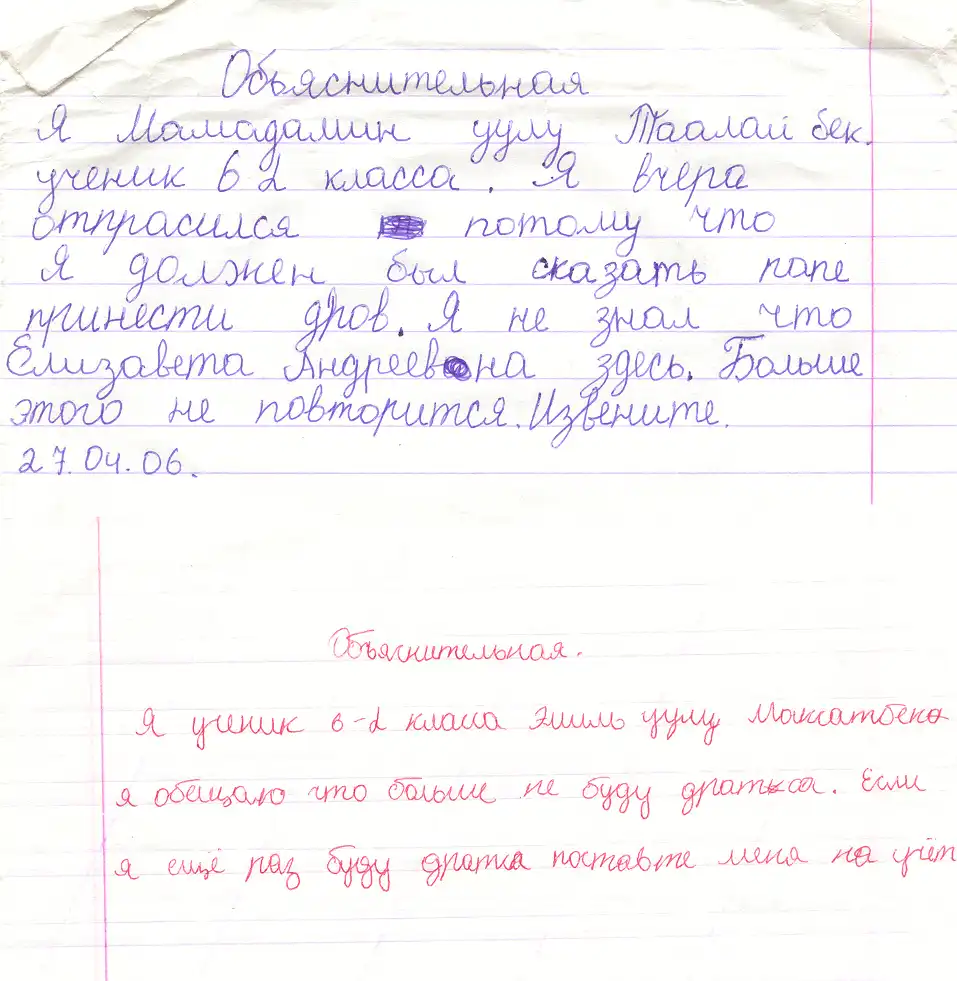 Обьяснительная
Я Мамадамин уулу Таалай бек.
ученик 6 2 класса. Я вчера
отпрасился потому что
Я должен был сказать папе
принести дров. Я не знал что
Елизавета Андреевна здесь. Больше
этого не повторится. Извените.
27.04.06.
Объяснительная.
Я ученик 6-2 класса Эшиль уулу Максатбека
я обещаю что больше не буду драться. Если
я ещё раз буду дратка поставте меня на учёт